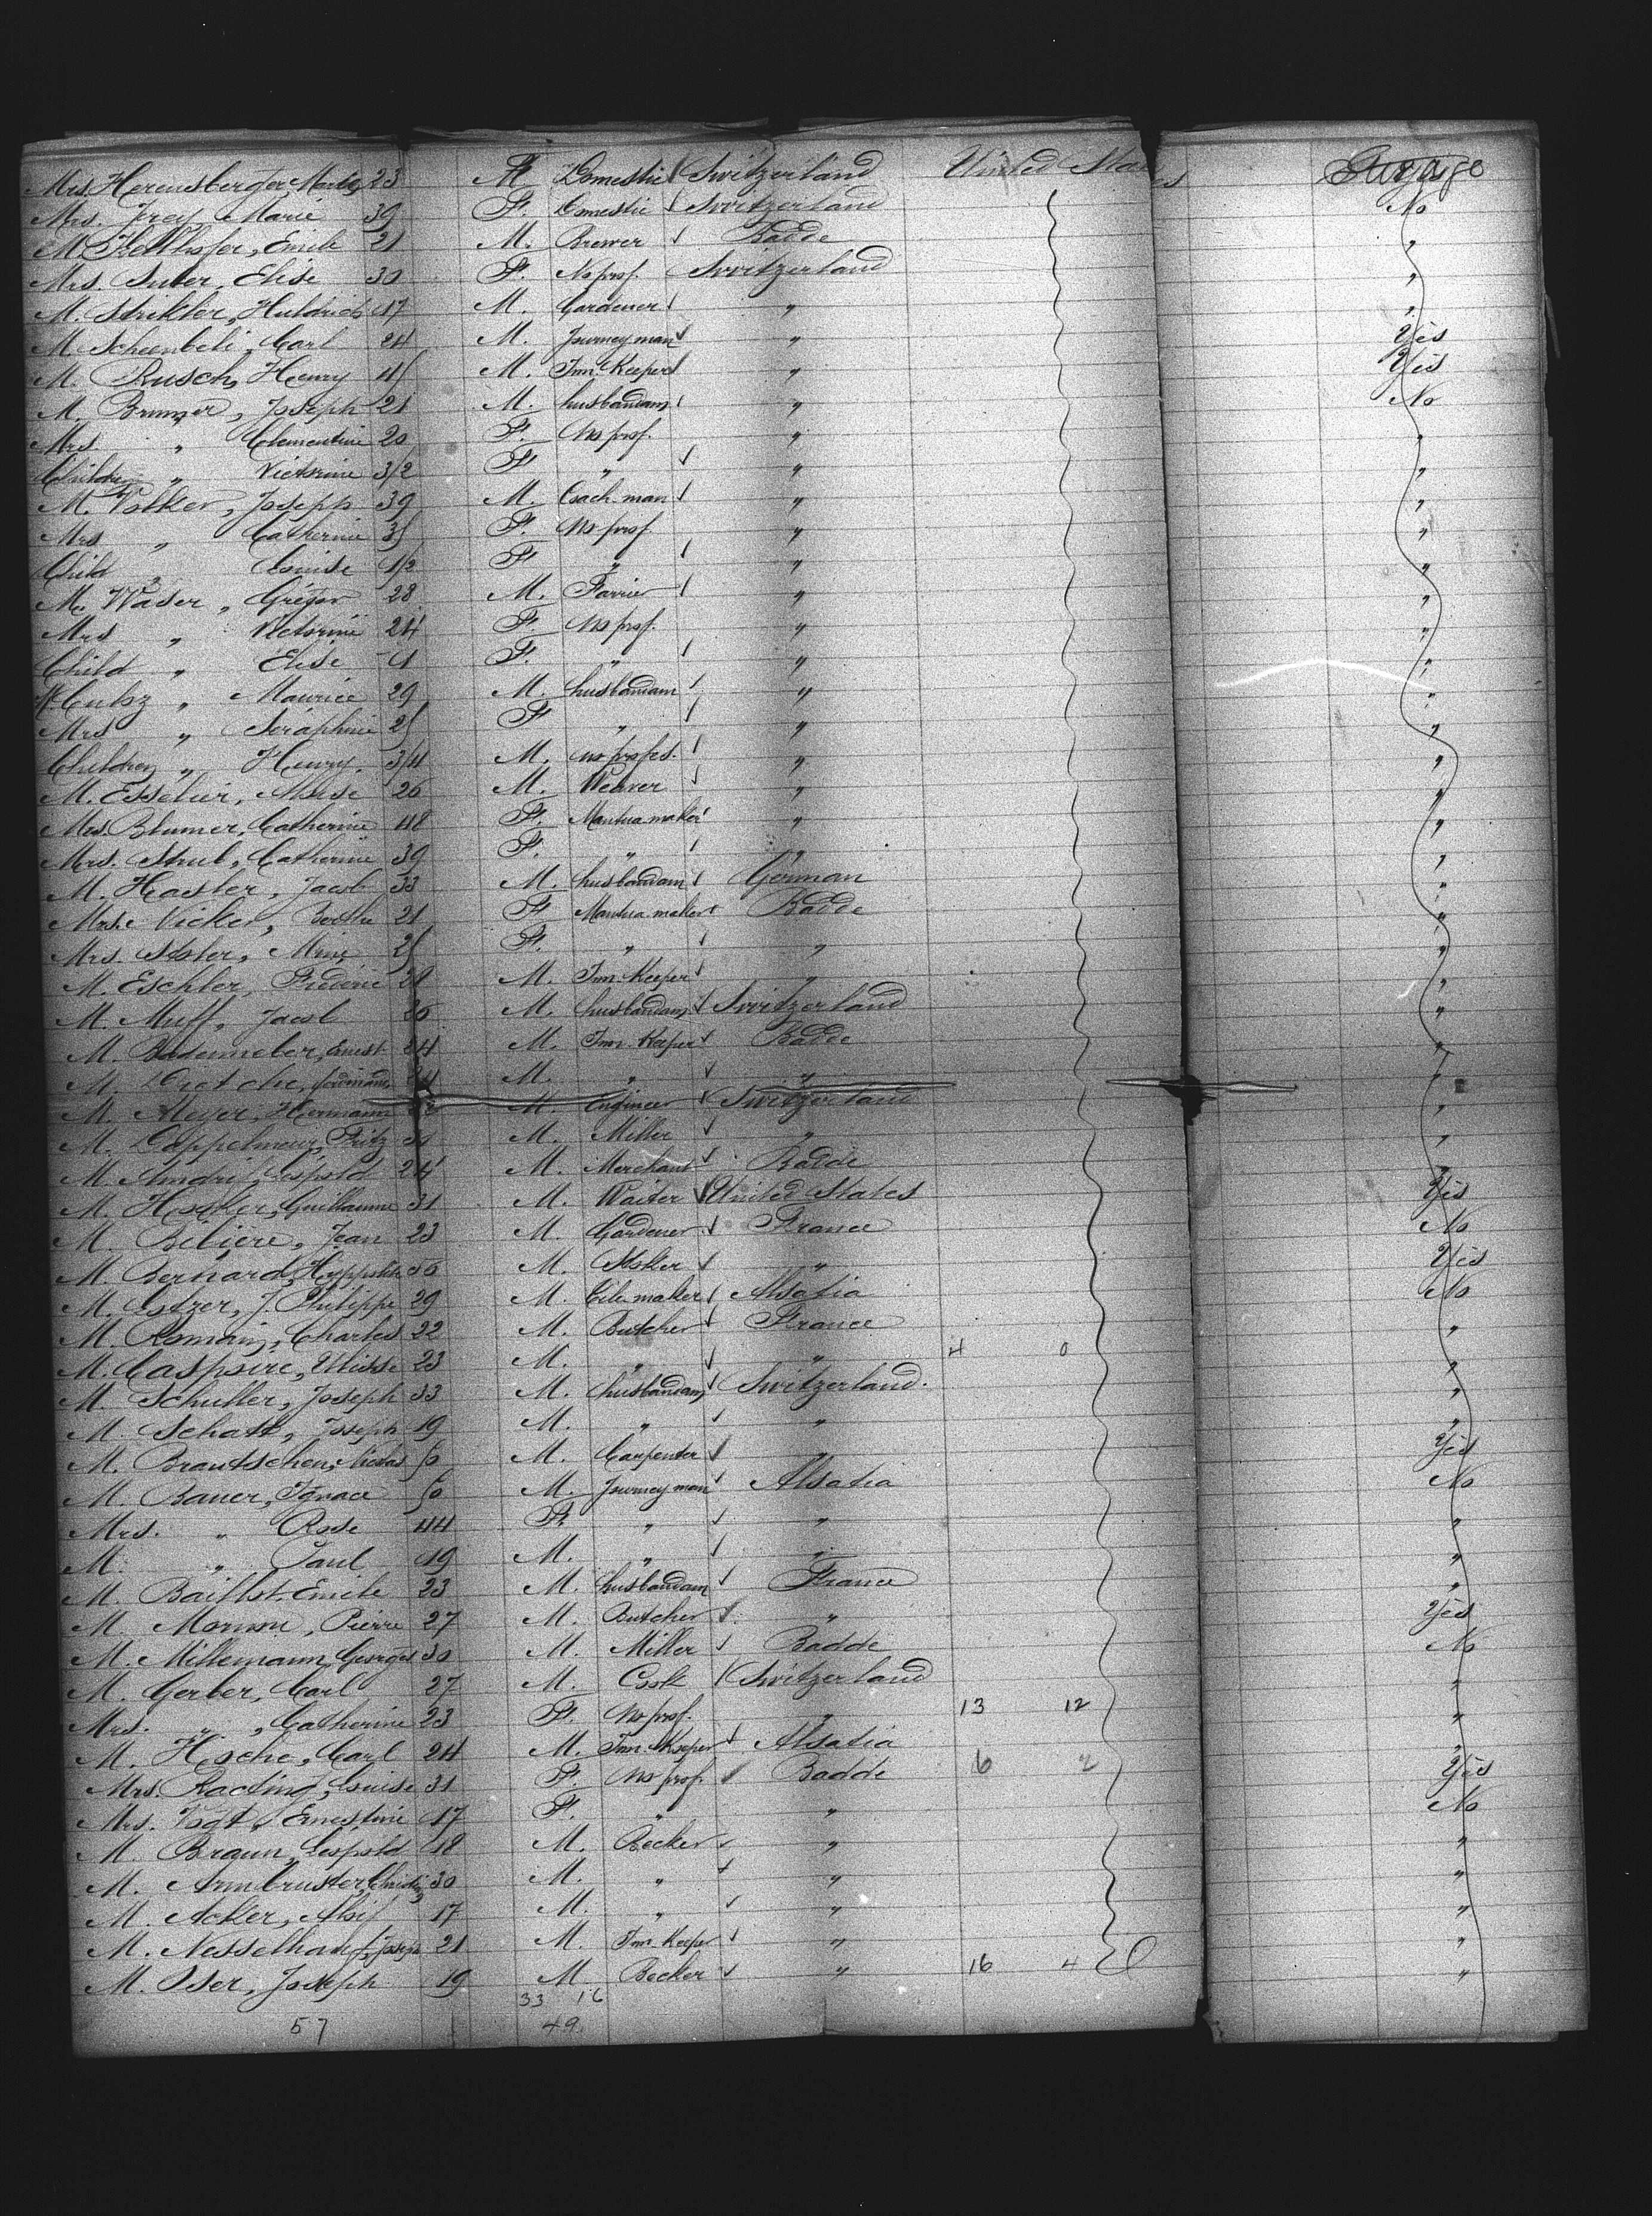 Mrs. Herensberger, Martin 23 M Domestic Switzerland United States Luggage
Mrs. Frey Marie 39 F. Domestic Switzerland No
M. Fellhofer, Emile 21 M. Brewer Badde "
Mrs. Suter, Elise 30 F. No prof. Switzerland "
M. Strikler, Huldrich 17 M. Gardener " "
M. Scheenbeli, Carl 24 M. Journey man " Yes
M. Rusch, Henry 45 M. Inn-Keeper " Yes
M. Brunner, Joseph 21 M. husbandam " No
Mrs. " Clementine 20 F. No prof. " "
Children " Victorine 3/2 F " " "
M. Volker, Joseph 39 M. Coach-man " "
Mrs " Catherine 35 F. No prof " "
Child " Louise 1/2 F " " "
M. Waser, Grégor 28 M. Farrier " "
Mrs " Victorine 24 F. No prof. " "
Child " Elise 1 F. " " "
M Cubz " Maurice 29 M. husbandam " "
Mrs " Séraphine 25 F " " "
Children " Henry. 3/4 M. no profes. " "
M. Esselier, Moise 26 M. Weaver " "
Mrs. Blumer, Catherine 48 F. Mantua-maker " "
Mrs. Strub, Catherine 39 F. " " "
M. Hasler, Jacob 33 M. husbandam German "
Mrs. Vicker, Berthe 21 F Mantua maker Badde "
Mrs. Stoler, 25 F. " " "
M. Eschler, Fréderic 21 M. Inn-Keeper " "
M. Muff, Jacob 26 M. husbandam Switzerland "
M. Bodenweber, Ernest 24 M. Inn-Keeper Badde "
M. Dietche, Ferdinand 24 M. " "
M. Meyer, Hermann M. Engineer Switzerland "
M. Dappelmeir, Fritz M. Miller " "
M. André, Léopold 24 M. Merchant Badde "
M. Hecker, Guillaume 31 M. Waiter United States Yes
M. Bibière, Jean 23 M. Gardener France No
M. Bernard, Hyppolite 36 M. Stoker " Yes
M. Lotzer, J. Philippe 29 M. Tile-maker Alsatia No
M. Romain, Charles 22 M. Butcher France "
M. Caspoire, Ulisse 23 M. " " 4 0 "
M. Schuller, Joseph 33 M. husbandam Switzerland. "
M. Schatt, Joseph 19 M. " " "
M. Brautschen, Nicolas 50 M. Carpenter " Yes
M. Bauer, Ignace 50 M. Journey man Alsatia No
Mrs. " Rose 44 F. " " "
M. " Paul 19 M. " " "
M. Baillot, Emile 23 M. husbandam France "
M. Mormon, Pierre 27 M. Butcher " Yes
M. Millemann, Georges 30 M. Miller Badde No
M. Gerber, Carl 27 M. Cook Switzerland "
Mrs. ", Catherine 23 F. No prof. " 13 12 "
M. Hoche, Carl 24 M. Inn-Keeper Alsatia "
Mrs. Racting, Louise 31 F. No prof Badde 6 2 Yes
Mrs. Vogt, Ernestine 17 F. " " No
M. Braun, Léopold 18 M. Becker " "
M. Armbruster, 30 M. " " "
M. Acker, Aloif 17 M. " " "
M. Nesselhauf, Joseph 21 M. Inn-Keeper " "
M. Oser, Joseph 19 M Becker " 16 4 "
33 16
57 49